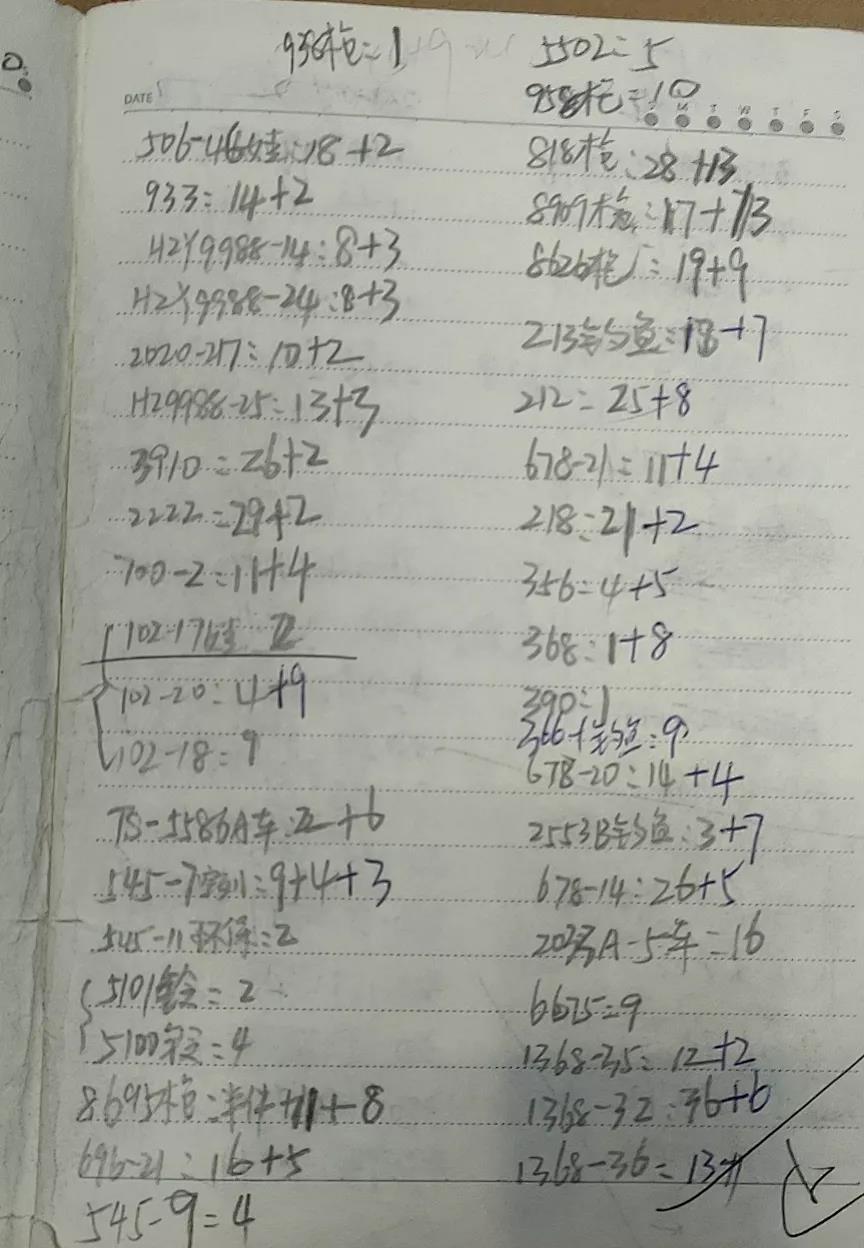 938枪=1
DATE
506-46娃:18+2
933:14+2
H2Y9988-14:8+3
H2Y9988-24:8+3
2020-217:10+2
H29988-25=13+3
3910=26+2
2222=29+2
700-2:11+4
102-17娃 II
102-20:4+9
102-18=9
TS-5586A车:II+6
545-7:9+4+3
545-11环保:2
5101=2
5100=4
8695枪:半件+11+8
696-21:16+5
545-9=4
5502=5
958枪=10
818枪:28+13
8909枪:17+13
8626枪:19+9
213钓鱼:18+7
212=25+8
678-21=11+4
218=21+2
356=4+5
368:1+8
390:1
366-1钓鱼:9
678-20:14+4
2553B钓鱼:3+7
678-14:26+5
A-5车=16
6675=9
1368-35=12+2
1368-32:36+6
1368-36=13+1